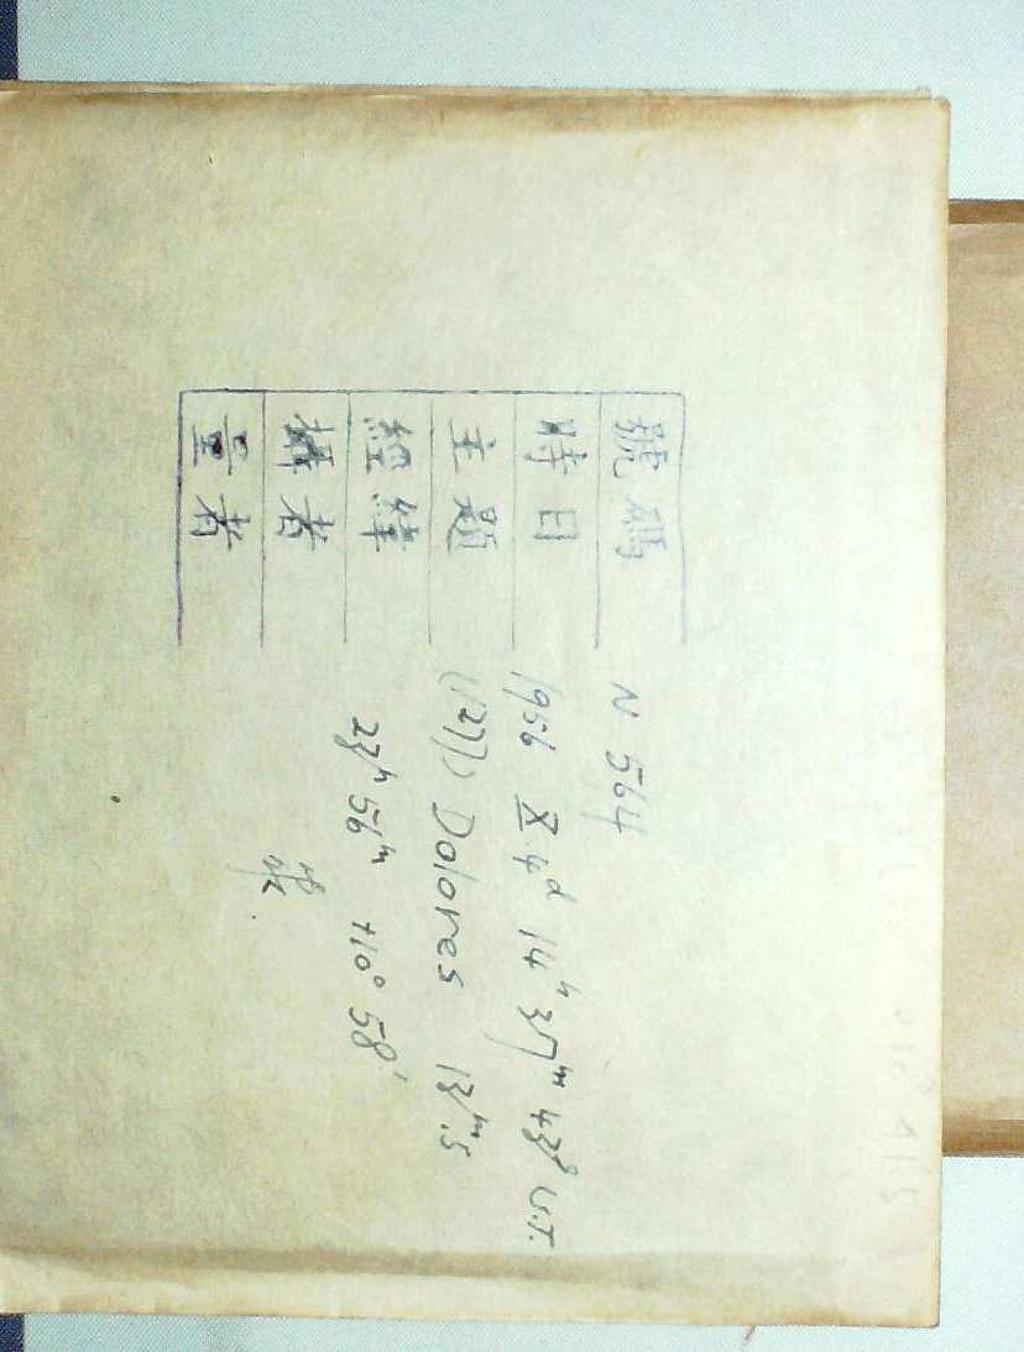 號碼 N 564
時日 1956 X 4d 14h 37m 43s U.T.
主題 (1277) Dolores 13m.5
經緯 23h 56m +10° 58'
攝者
量者